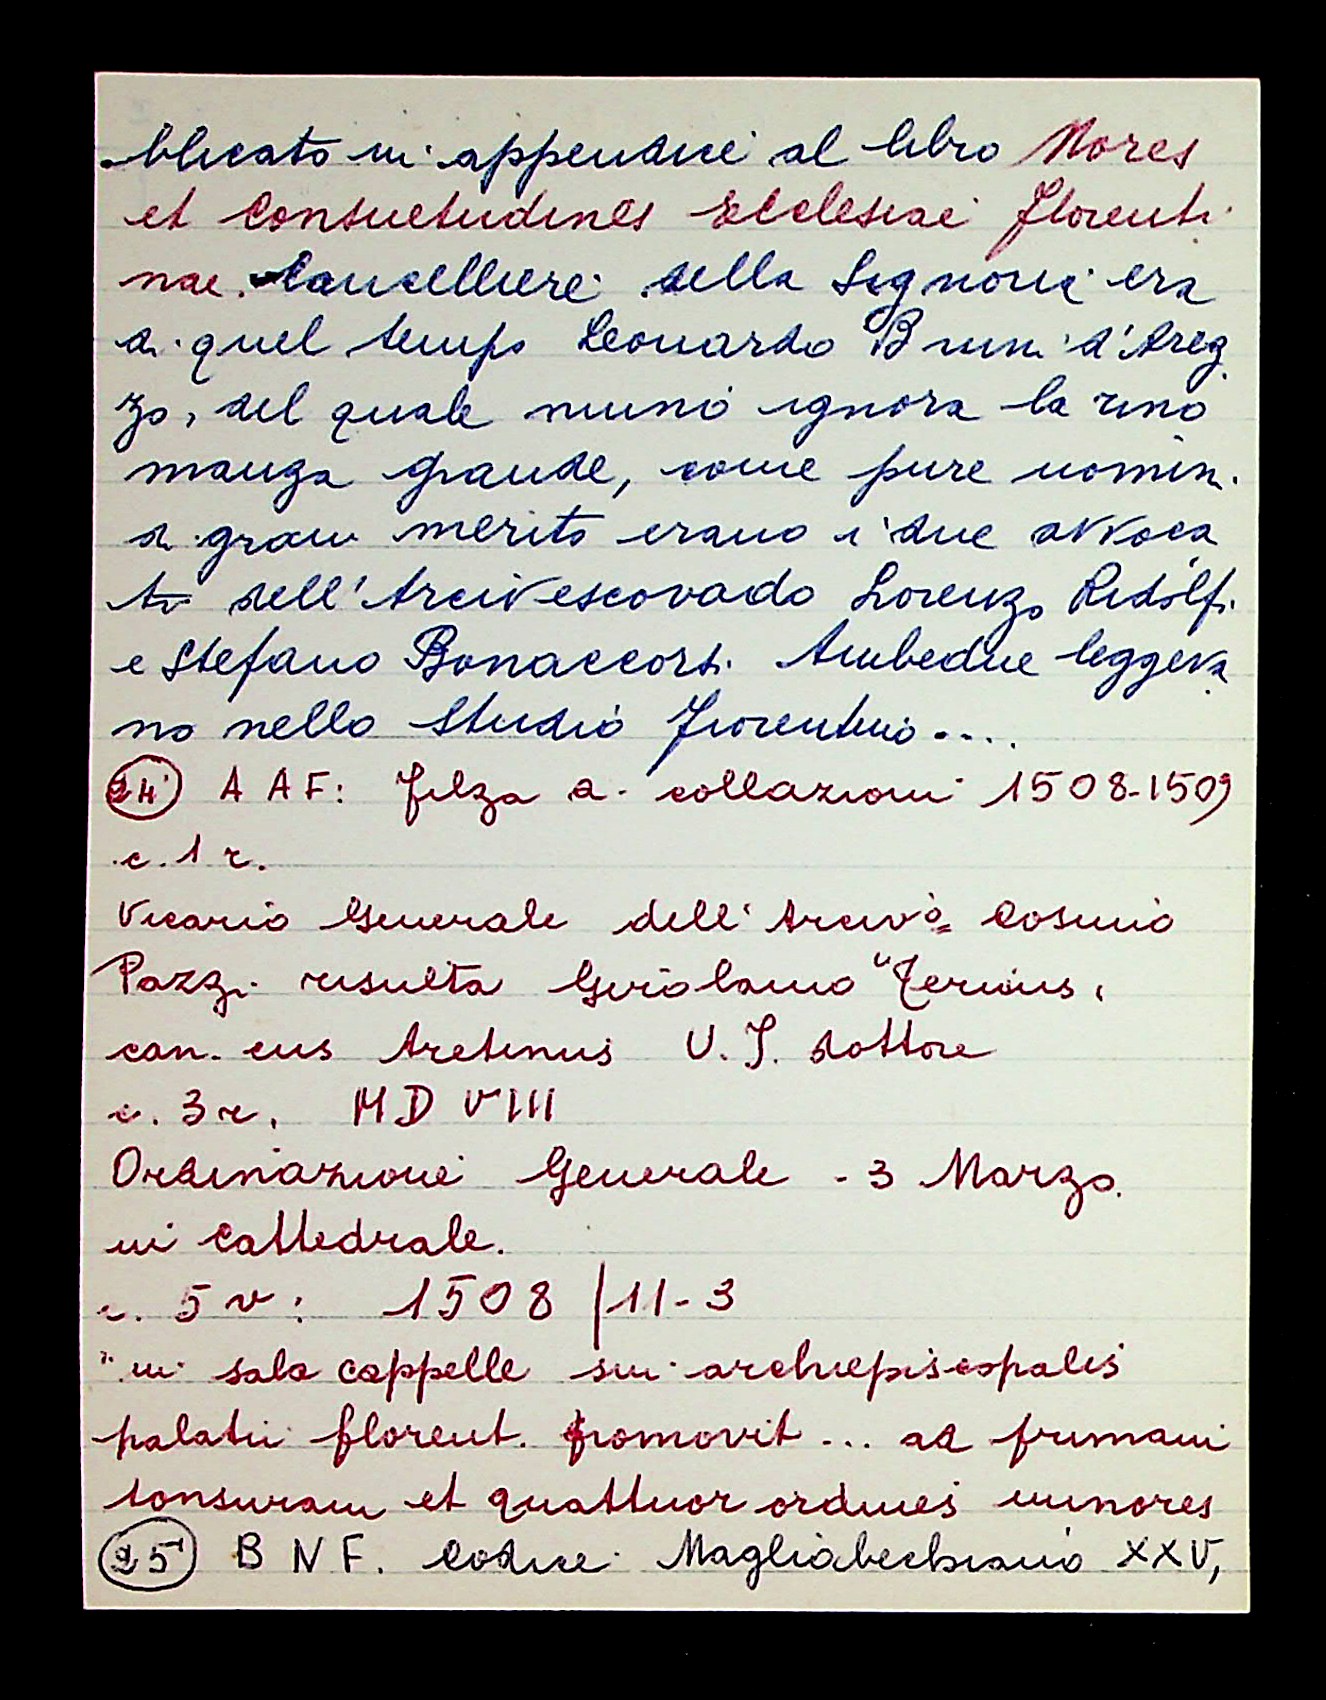 blicato in appendice al libro Mores
et Consuetudines Ecclesiae Florenti
nae. Cancelliere della Signoria era
di quel tempo Leonardo Bruni d'Arez
zo, del quale niuno ignora la rino
manza grande, come pure uomini
di gran merito erano i due avvoca
ti dell'Arcivescovado Lorenzo Ridolfi
e Stefano Bonaccorsi. Ambedue leggeva
no nello Studio Fiorentino....
24 A A F: filza di collazioni 1508-1509
c. 1 r.
Vicario Generale dell'Arcivo Cosimo
Pazzi risulta Girolamo
can.cus Aretinus U. J. dottore
c. 3 r. MD VIII
Ordinazione Generale - 3 Marzo
in Cattedrale.
c. 5 v: 1508 / 11-3
"in sala cappelle sui archiepiscopalis
palatii florent. promovit ... ad primam
tonsuram et quattuor ordines minores
25 B N F. Codice Magliabechiano XXV,